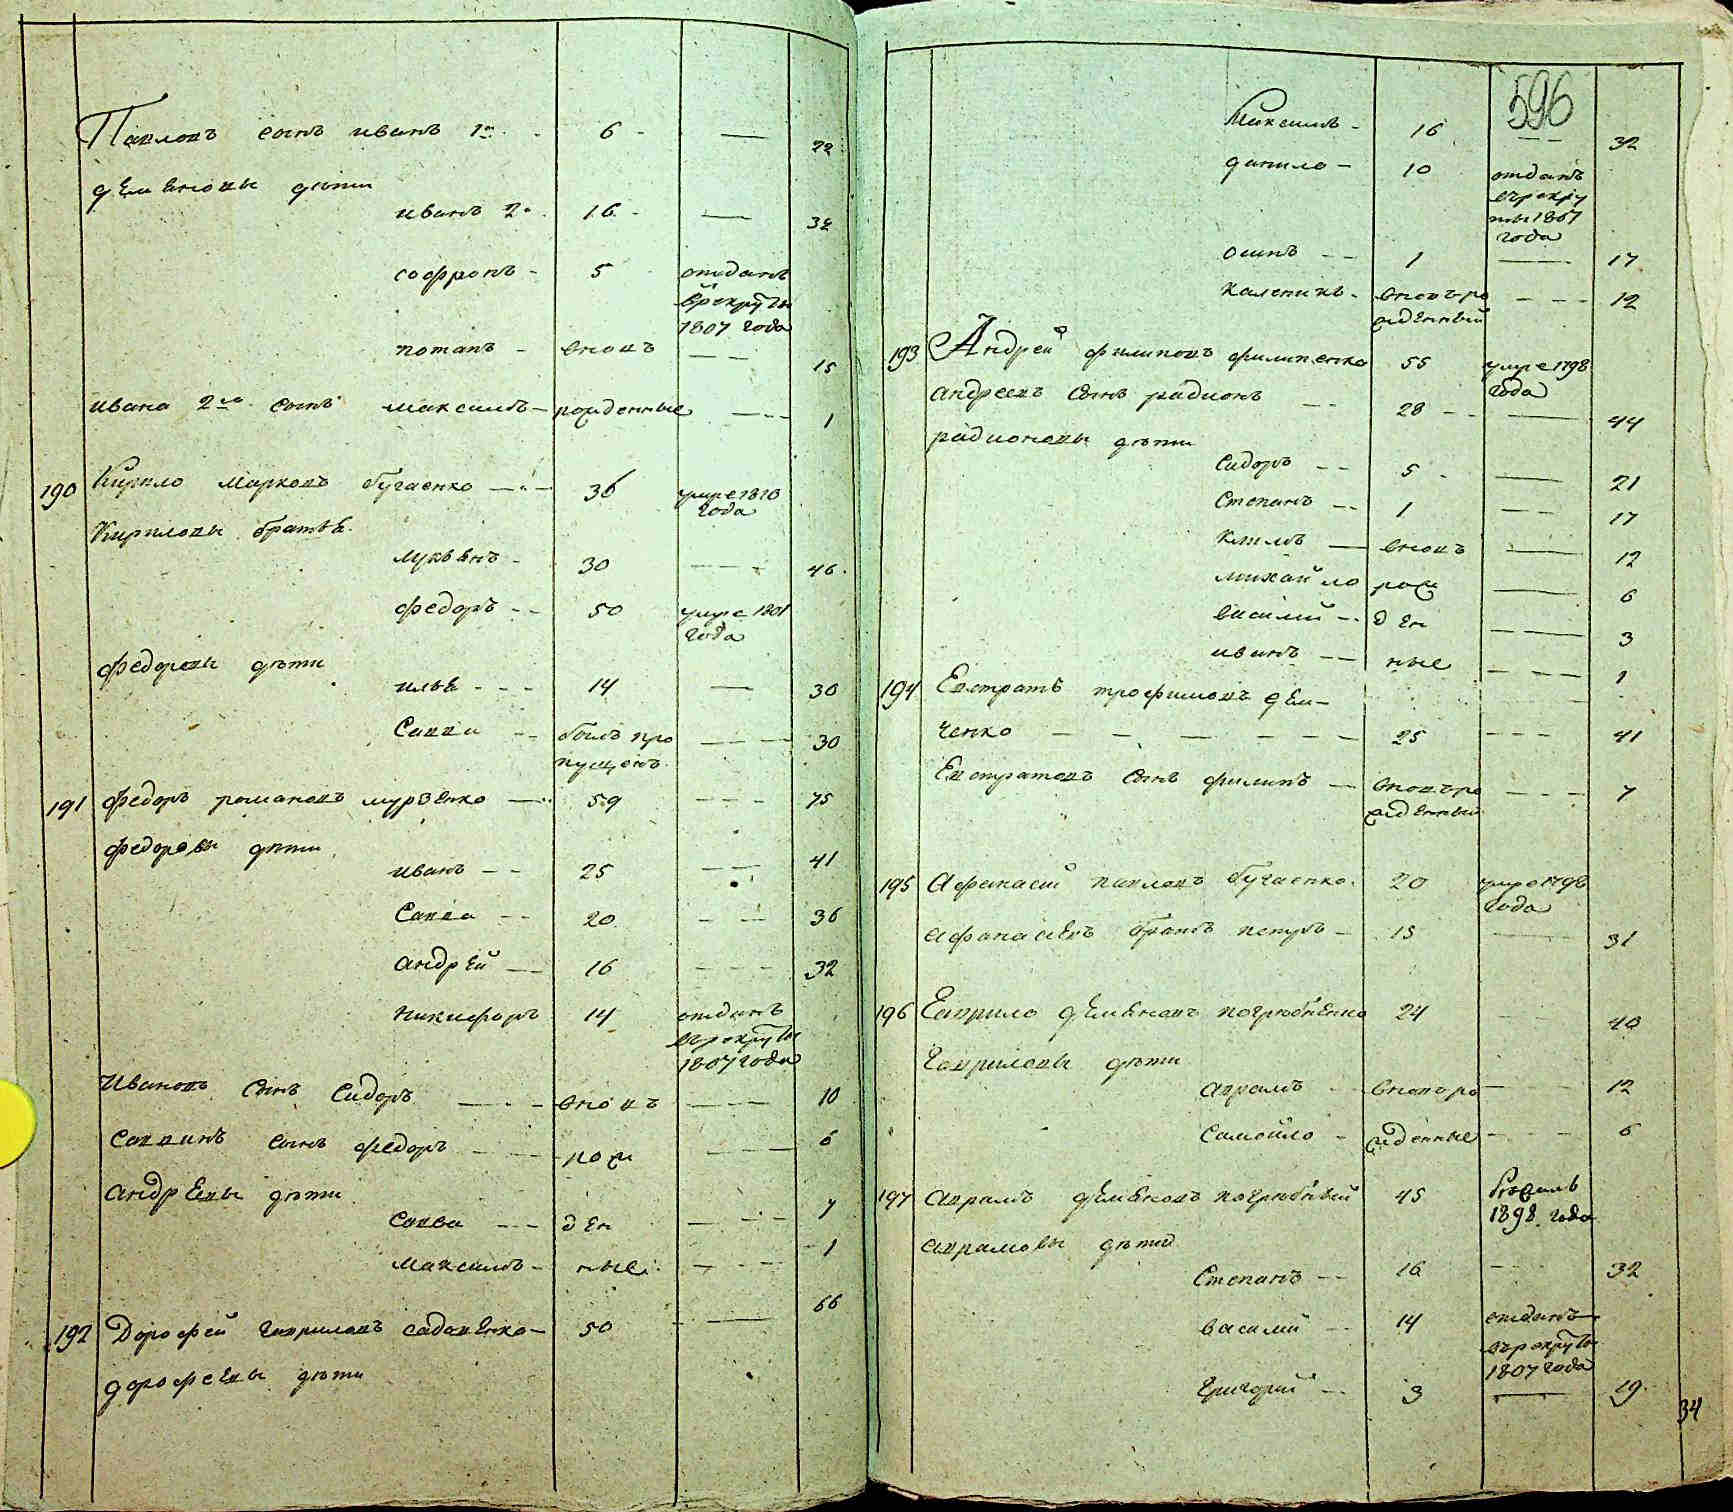 Павловъ сынъ иванъ 1й 6 — 22
демяновы дѣти
иванъ 2й 16 — 32
софронъ 5 отданъ
врекруты
1807 года
потапъ вновь — 15
ивана 2го сынъ максимъ рожденные — 1
190 Кирило марковъ бугаенко 36 умре 1810
года
Кириловы братья
лукьянъ 30 — 46
федоръ 50 умре 1801
года
федоровы дѣти
илья 14 — 30
Савва былъ про — 30
пущенъ
191 федоръ романовъ мурзенко 59 — 75
федоровы дѣти
иванъ 25 — 41
Савва 20 — 36
андрей 16 — 32
никифоръ 14 отданъ
върекруты
1807 года
Ивановъ сынъ Сидоръ вновь — 10
Саввинъ сынъ федоръ рож — 6
андреевы дѣти
Савва ден — 7
максимъ ные — 1
192 Дорофей гавриловъ 50 — 66
дорофеевы дѣти
596
Максимъ 16 — 32
данило 10 отданъ
върекру
ты 1807
года
осипъ 1 — 17
каленикъ вновьро — 12
жденный
193 Андрей филиповъ филипенко 55 умре 1798
года
андреевъ сынъ радионъ 28 — 44
радионовы дѣти
Сидоръ 5 — 21
Степанъ 1 — 17
климъ вновь — 12
михайло рож — 6
василий ден — 3
иванъ ные — 1
194 Евстратъ трофимовъ дем-
ченко 25 — 41
Евстратовъ сынъ филипъ вновьро — 7
жденный
195 Афанасий павловъ бугаенко 20 умре 1798
года
афанасиевъ братъ петръ 15 — 31
196 Гаврило демяновъ погребненко 24 — 40
Гавриловы дѣти
аврамъ вновъро — 12
Самойло жденные — 6
197 аврамъ демяновъ погребный 45 бѣжалъ
1898 года
аврамовы дѣти
Степанъ 16 — 32
василий 14 отданъ
върекруты
1807 года
григорий 3 — 19
34